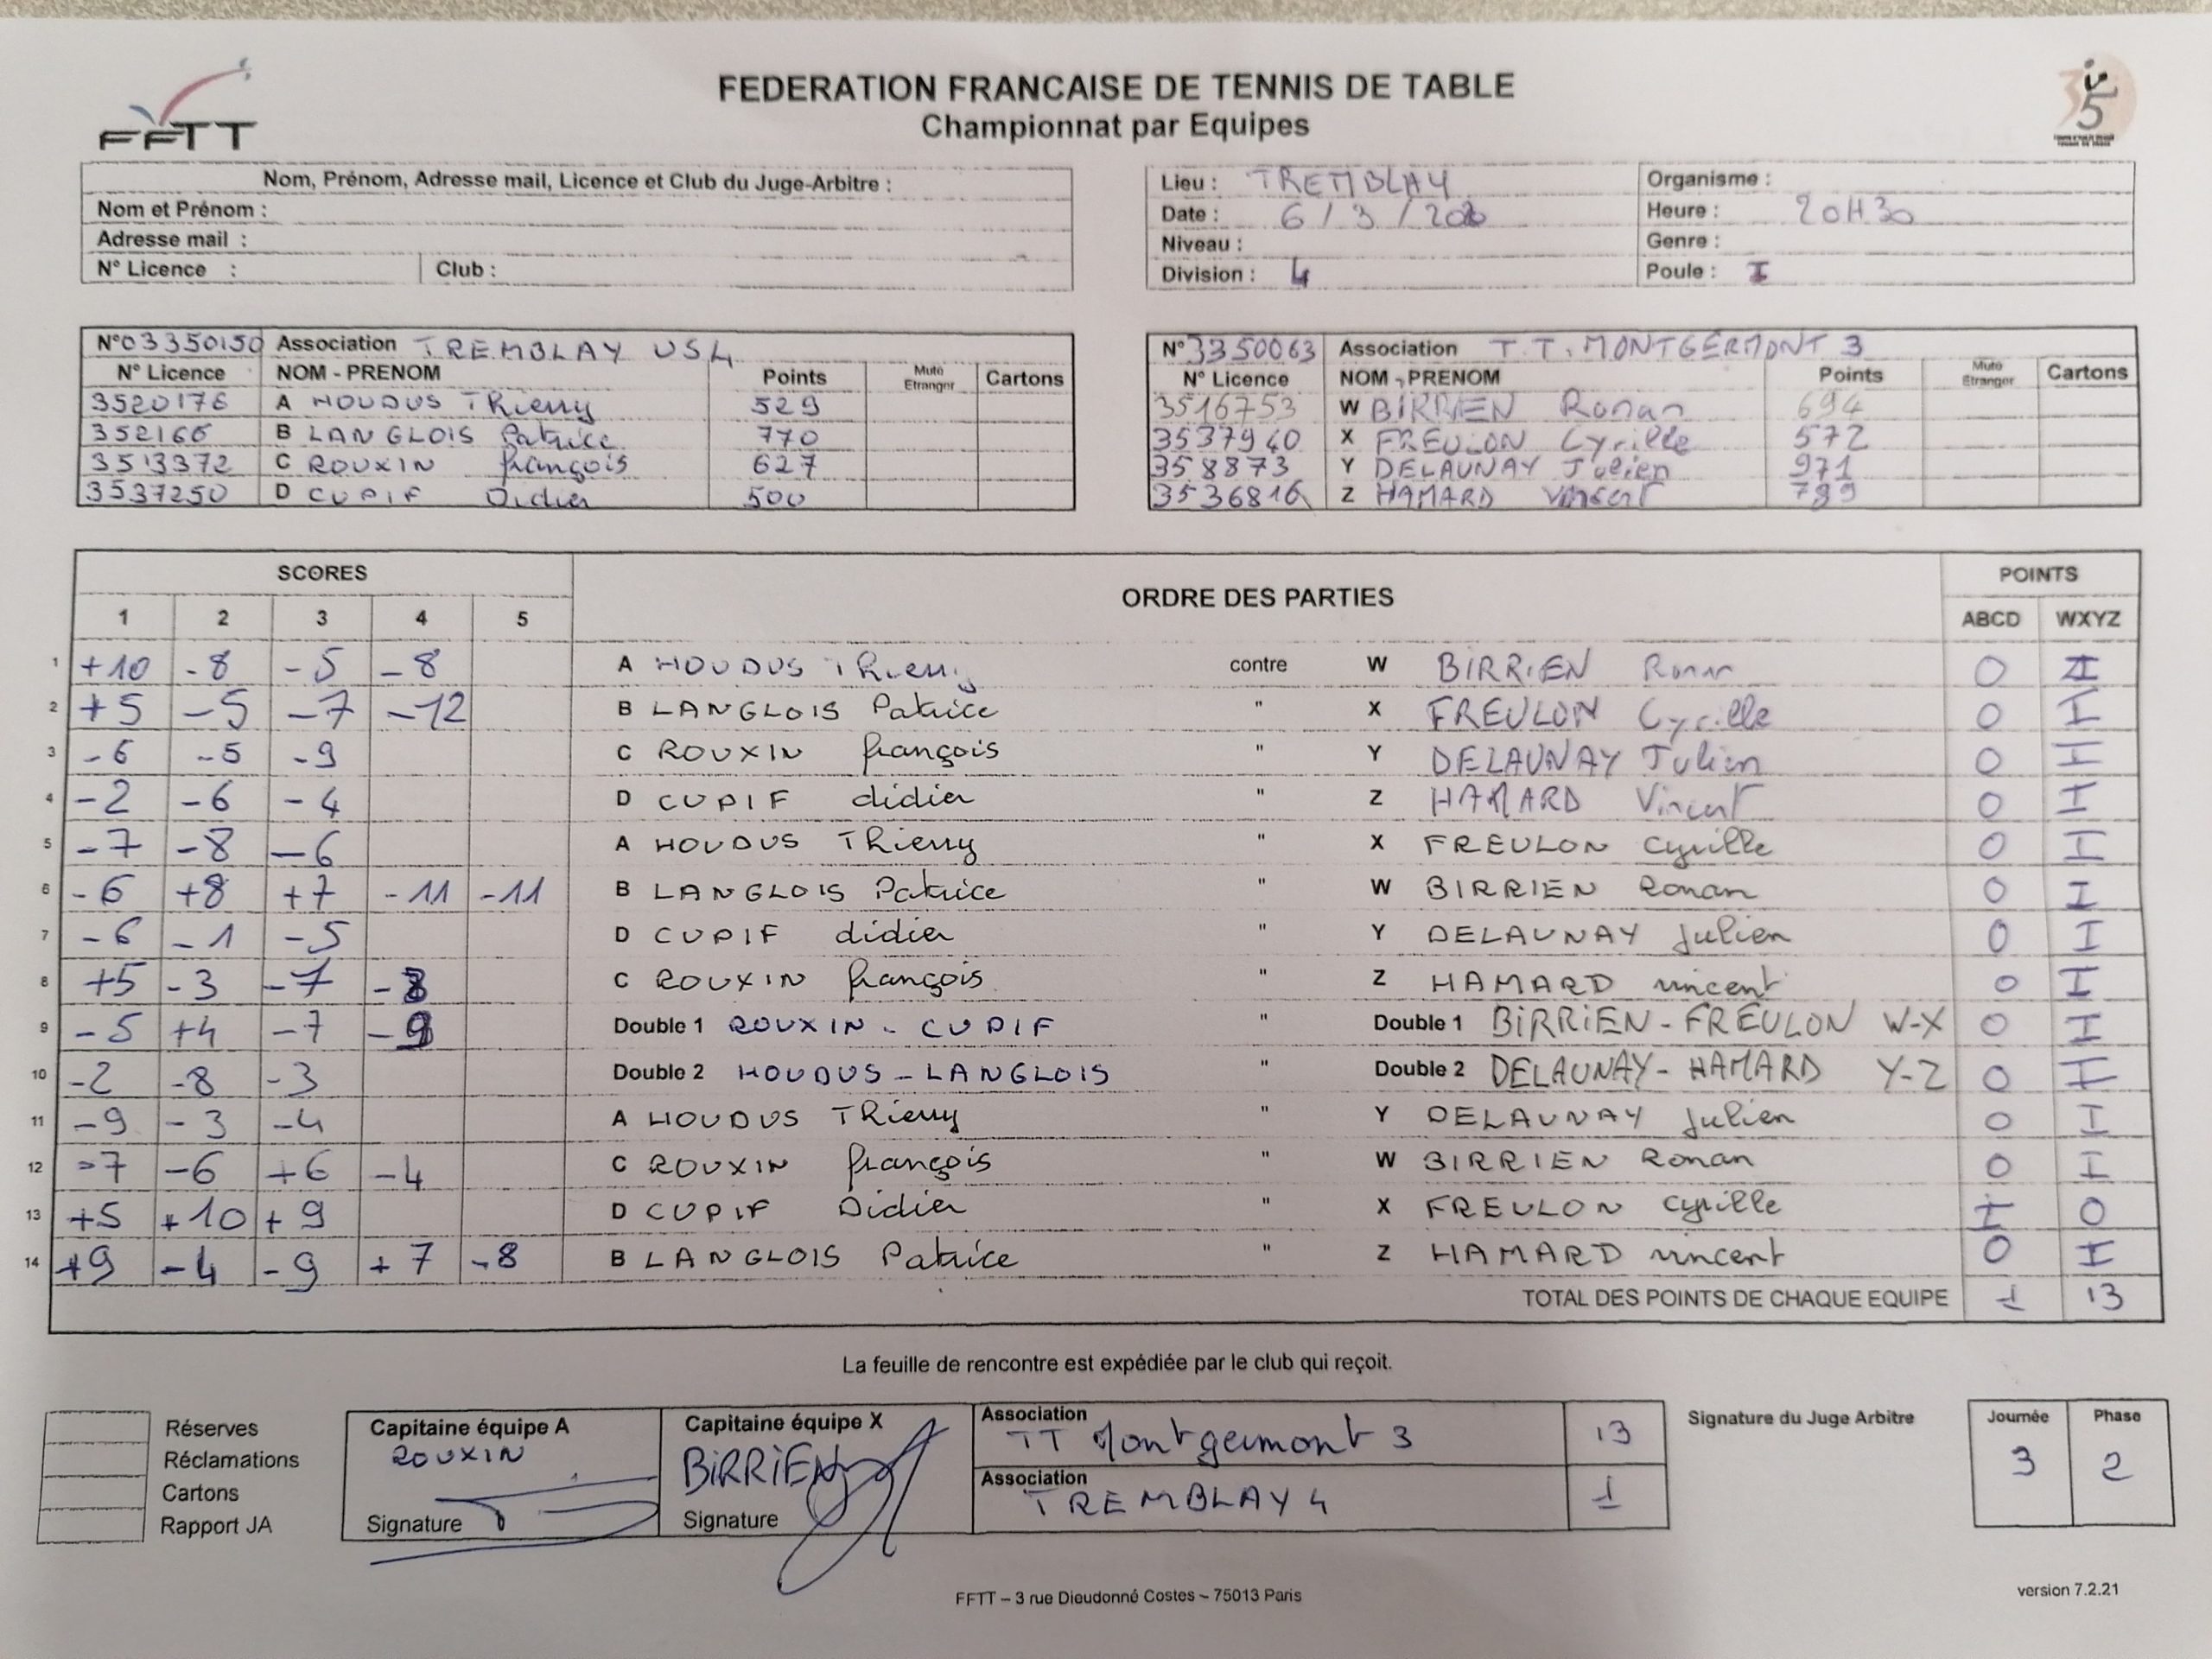 FFTT
FEDERATION FRANCAISE DE TENNIS DE TABLE
Championnat par Equipes
Nom, Prénom, Adresse mail, Licence et Club du Juge-Arbitre :
Nom et Prénom :
Adresse mail :
N° Licence : Club :
Lieu : TREMBLAY Organisme :
Date : 6 / 3 / Heure : 20H30
Niveau : Genre :
Division : 4 Poule : I
N°03350150 Association TREMBLAY US4
N° Licence NOM - PRENOM Points Muté Etranger Cartons
3520176 A HOUDUS Thierry 529
352166 B LANGLOIS Patrice 770
3513372 C ROUXIN françois 627
3537250 D CUPIF Didier 500
N°3350063 Association T.T. MONTGERMONT 3
N° Licence NOM - PRENOM Points Muté Etranger Cartons
3516753 W BIRRIEN Ronan 694
3537940 X FREULON Cyrille 572
358873 Y DELAUNAY Julien 971
3536816 Z HAMARD Vincent 789
SCORES ORDRE DES PARTIES POINTS
1 2 3 4 5 ABCD WXYZ
1 +10 -8 -5 -8 A HOUDUS Thierry contre W BIRRIEN Ronan 0 1
2 +5 -5 -7 -12 B LANGLOIS Patrice " X FREULON Cyrille 0 1
3 -6 -5 -9 C ROUXIN françois " Y DELAUNAY Julien 0 1
4 -2 -6 -4 D CUPIF didier " Z HAMARD Vincent 0 1
5 -7 -8 -6 A HOUDUS Thierry " X FREULON Cyrille 0 1
6 -6 +8 +7 -11 -11 B LANGLOIS Patrice " W BIRRIEN Ronan 0 1
7 -6 -1 -5 D CUPIF didier " Y DELAUNAY Julien 0 1
8 +5 -3 -7 -8 C ROUXIN françois " Z HAMARD vincent 0 1
9 -5 +4 -7 -9 Double 1 ROUXIN - CUPIF " Double 1 BIRRIEN - FREULON W-X 0 1
10 -2 -8 -3 Double 2 HOUDUS - LANGLOIS " Double 2 DELAUNAY - HAMARD Y-Z 0 1
11 -9 -3 -4 A HOUDUS Thierry " Y DELAUNAY Julien 0 1
12 -7 -6 +6 -4 C ROUXIN françois " W BIRRIEN Ronan 0 1
13 +5 +10 +9 D CUPIF Didier " X FREULON Cyrille 1 0
14 +9 -4 -9 +7 -8 B LANGLOIS Patrice " Z HAMARD vincent 0 1
TOTAL DES POINTS DE CHAQUE EQUIPE 1 13
La feuille de rencontre est expédiée par le club qui reçoit.
Réserves
Réclamations
Cartons
Rapport JA
Capitaine équipe A
ROUXIN
Signature
Capitaine équipe X
BIRRIEN
Signature
Association
TT Montgermont 3 13
Association
TREMBLAY 4 1
Signature du Juge Arbitre
Journée Phase
3 2
FFTT – 3 rue Dieudonné Costes ~ 75013 Paris
version 7.2.21